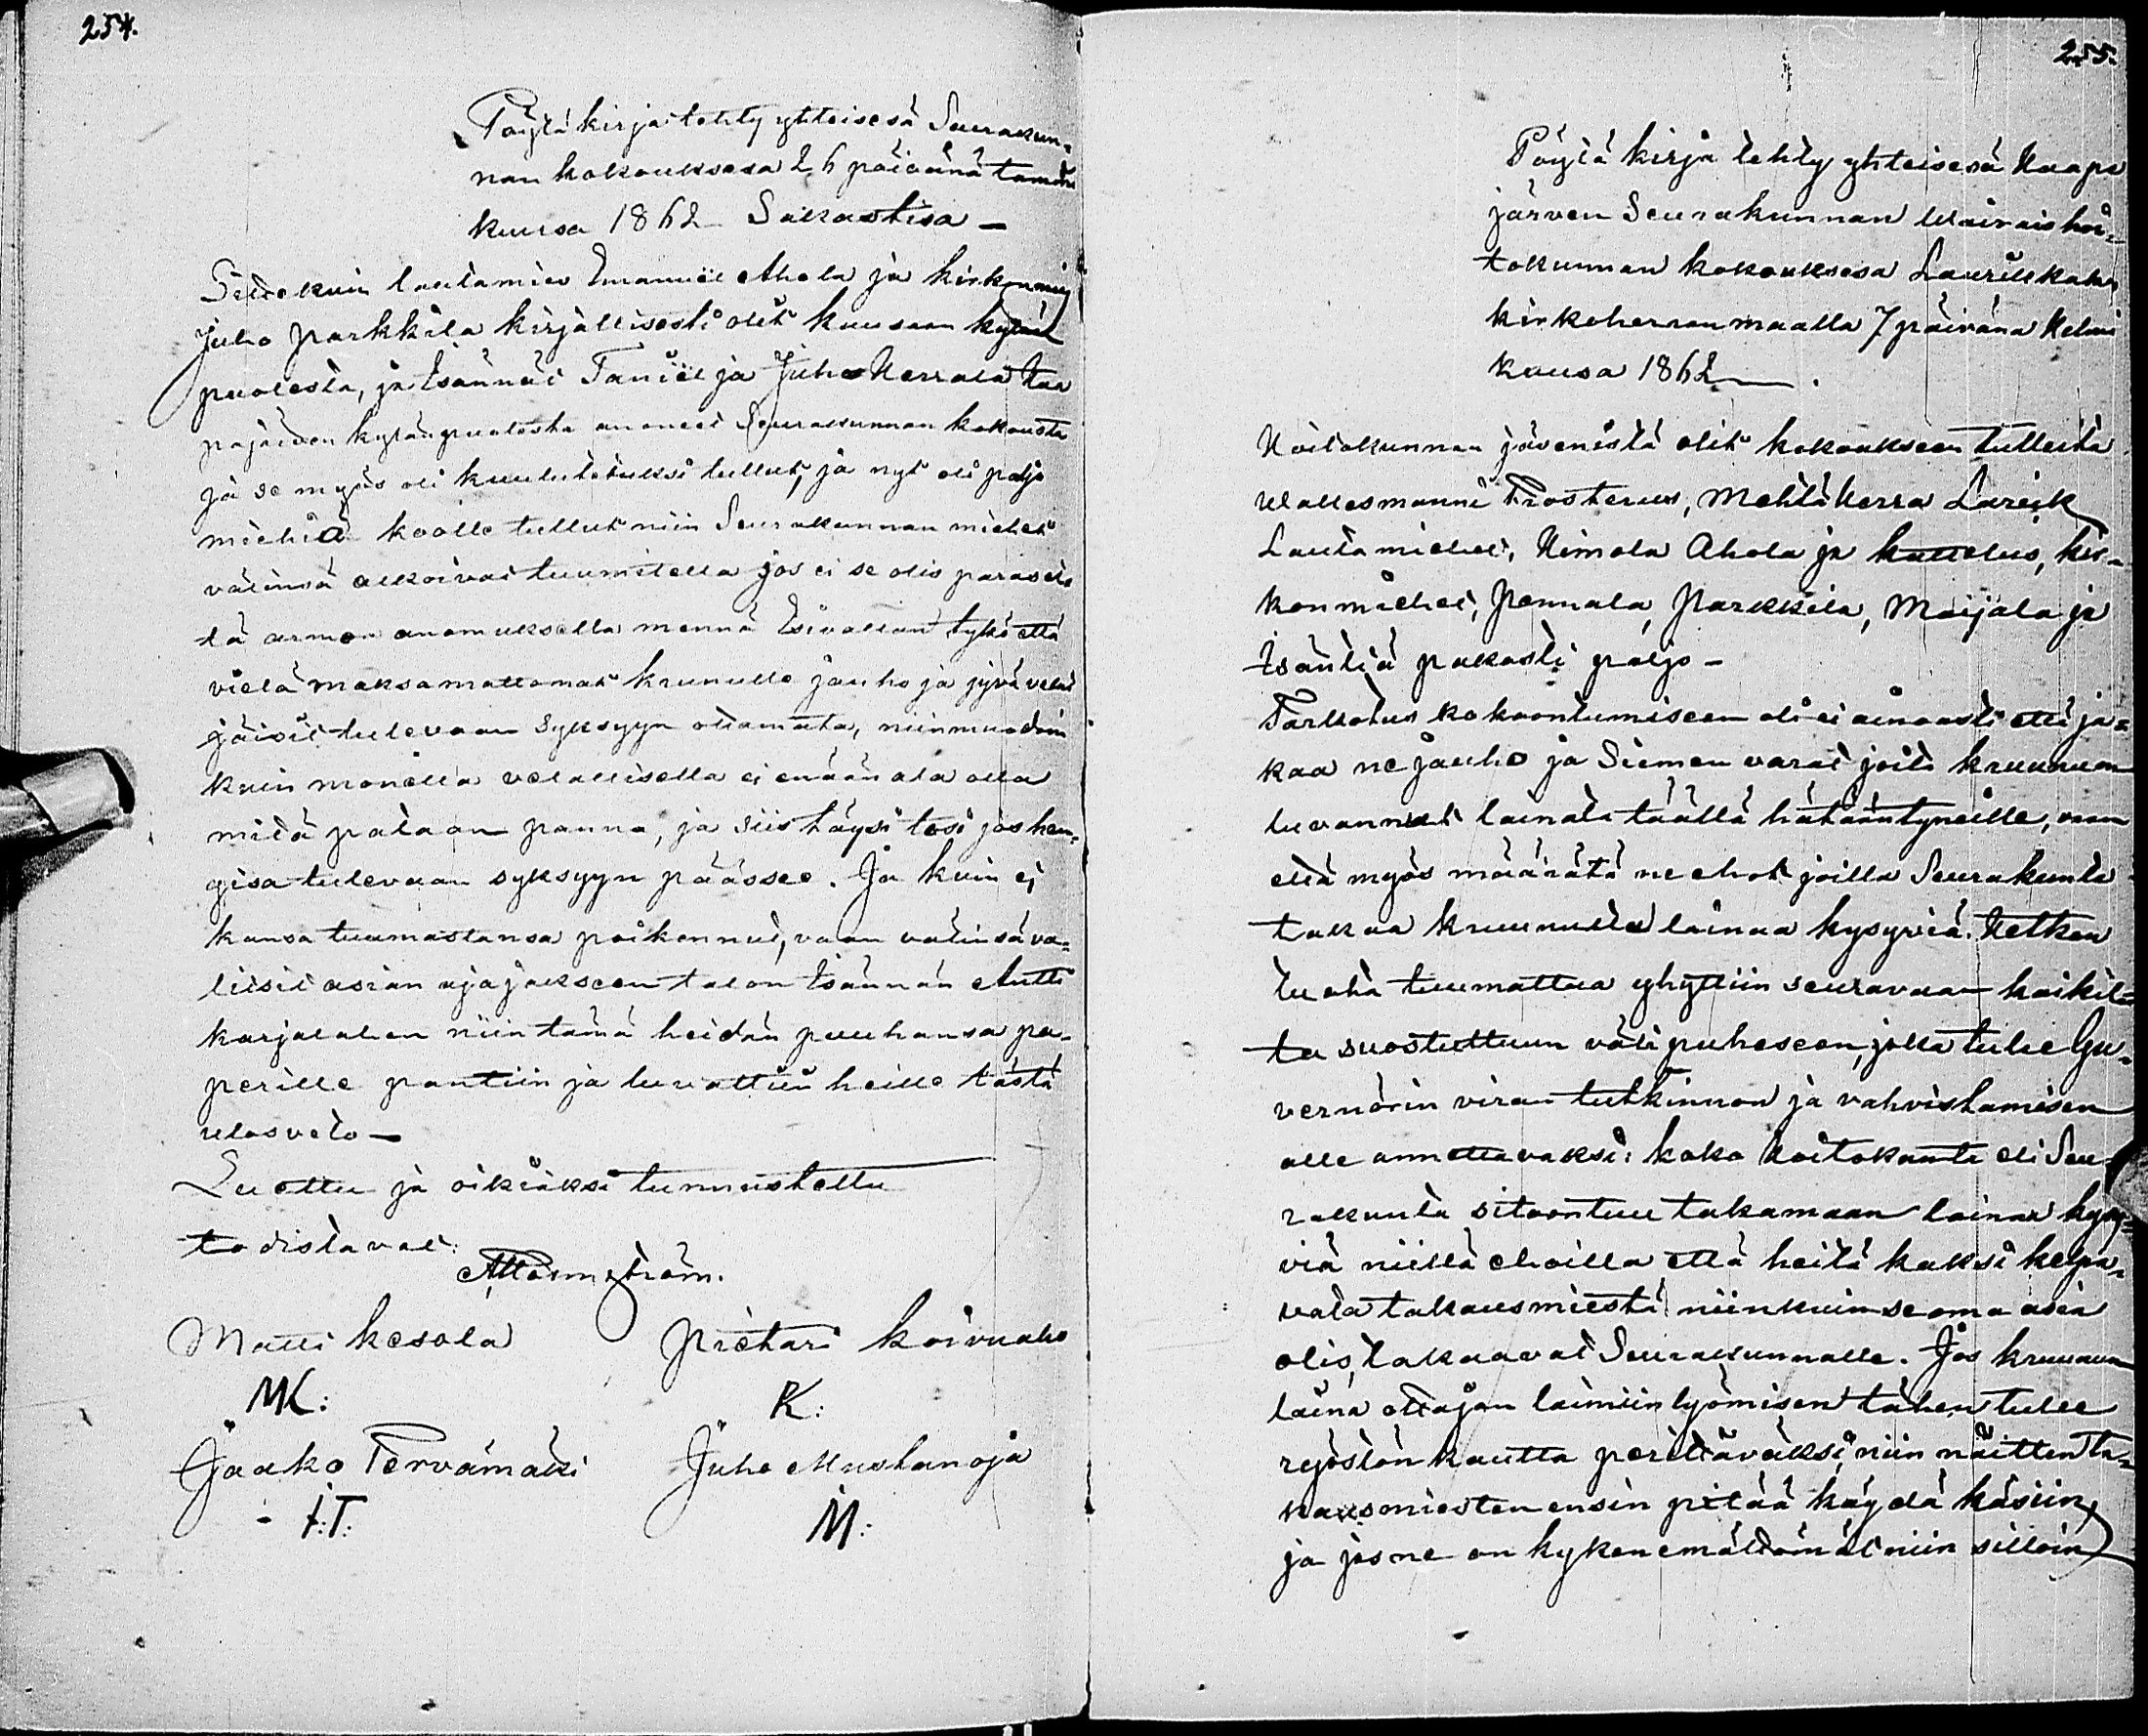 254.
Pöytä kirja tehty yhteisesä Seurakun-
nan kokouksesa 26 päivänä tammi
kuusa 1862 Sakastisa —
Sittekuin lautamies Emanuel Ahola ja kirkonmies
Juho Parkkila kirjallisesti olit kuusaan kylän
puolesta, ja Isännät Taniel ja Juho Herrala
pajaiden kylän puolesta anoneet Seurakunnan kokousta
ja se myös oli kuulutetuksi tullut, ja nyt oli paljo
miehiä koolle tullut niin Seurakunnan miehet
välinsä alkoivat tuumitella jos ei se olis paras että
tä armon anomuksella mennä Esivallan tykö että
vielä maksamattomat kruunulle jauho ja jyvä velat
jäisit tulevaan syksyyn ottamata, niinmuodoin
kuin monella velallisella ei enään ala olla
mitä pataan panna, ja siis täysi tosi jos hen-
gisa tulevaan syksyyn päässee. Ja kuin ej
kansa tuumastansa poikennut, vaan välinsä va-
litsit asian ajajakseen talon Isännän Antti
karjalahen niin tämä heidän puuhansa pa-
perille pantiin ja luvattiin heille tästä
ulosveto —
Luettu ja oikiaksi tunnustettu
todistavat:
Matti kesola Pietari koivuaho
MK: K:
Jaako Tervamäki Juho Mustanoja
I:T: M:
255.
Pöytä kirja tehty yhteisesä Haapa
järven Seurakunnan waivaishoi-
tokunnan kokouksesa
kirkeherran maalla 7 päivänä Helmi
kuusa 1862 —.
Hoitokunnan jäsenistä olit kokoukseen tulleita
wallesmanni Frosterus, Mehtäherra
Lautamiehet, Himola Ahola ja kattelus, kir-
konmiehet, Pennala, Parkkila, Maijala ja
Isäntiä pakasti paljo —
Tarkotus kokoontumiseen oli ei ainoasti että ja-
kaa ne jauho ja Siemen varat joita kruunu on
luvannut lainata täällä hätääntyneille, vaan
että myös määrätä ne ehot joilla Seurakunta
takaa kruunulta lainaa kysyviä. Hetken
tuota tuumattua yhyttiin seuravaan kaikil-
ta suostuttuun väli puheseen, jolla tulee Gu-
vernörin viran tutkinnon ja vahvistamisen
alle annettavaksi: koko hoitokunta eli Seu-
rakunta sitoontuu takamaan lainan kysy-
viä niillä ehoilla että heitä kaksi kelpa-
vata takausmiestä niinkuin se oma asia
olis, takaavat Seurakunnalle. Jos kruunun
laina ottajan laimiin lyömisen tähen tulee
ryöstön kautta perittäväksi, niin näitten ta-
kausmiesten ensin pitää käydä käsiin,
ja jos ne on kykenemättömät niin silloin